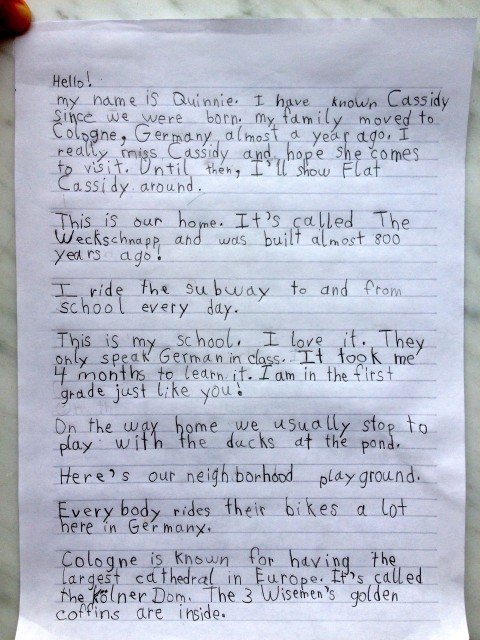 Hello!
my name is Quinnie. I have known Cassidy
since we were born. my family moved to
Cologne, Germany almost a year ago. I
really miss Cassidy and hope she comes
to visit. Until then, I'll show Flat
Cassidy around.
This is our home. It's called The
Weckschnapp and was built almost 800
years ago!
I ride the subway to and from
school every day.
This is my school. I love it. They
only speak German in class. It took me
4 months to learn it. I am in the first
grade just like you!
On the way home we usually stop to
play with the ducks at the pond.
Here's our neighborhood playground.
Everybody rides their bikes a lot
here in Germany.
Cologne is known for having the
largest cathedral in Europe. It's called
the Kölner Dom. The 3 Wisemen's golden
coffins are inside.